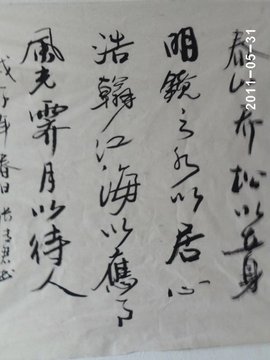 泰山乔松以立身
明镜之水以居心
浩翰江海以應事
風光霽月以待人
戊子年春日
2011-05-31